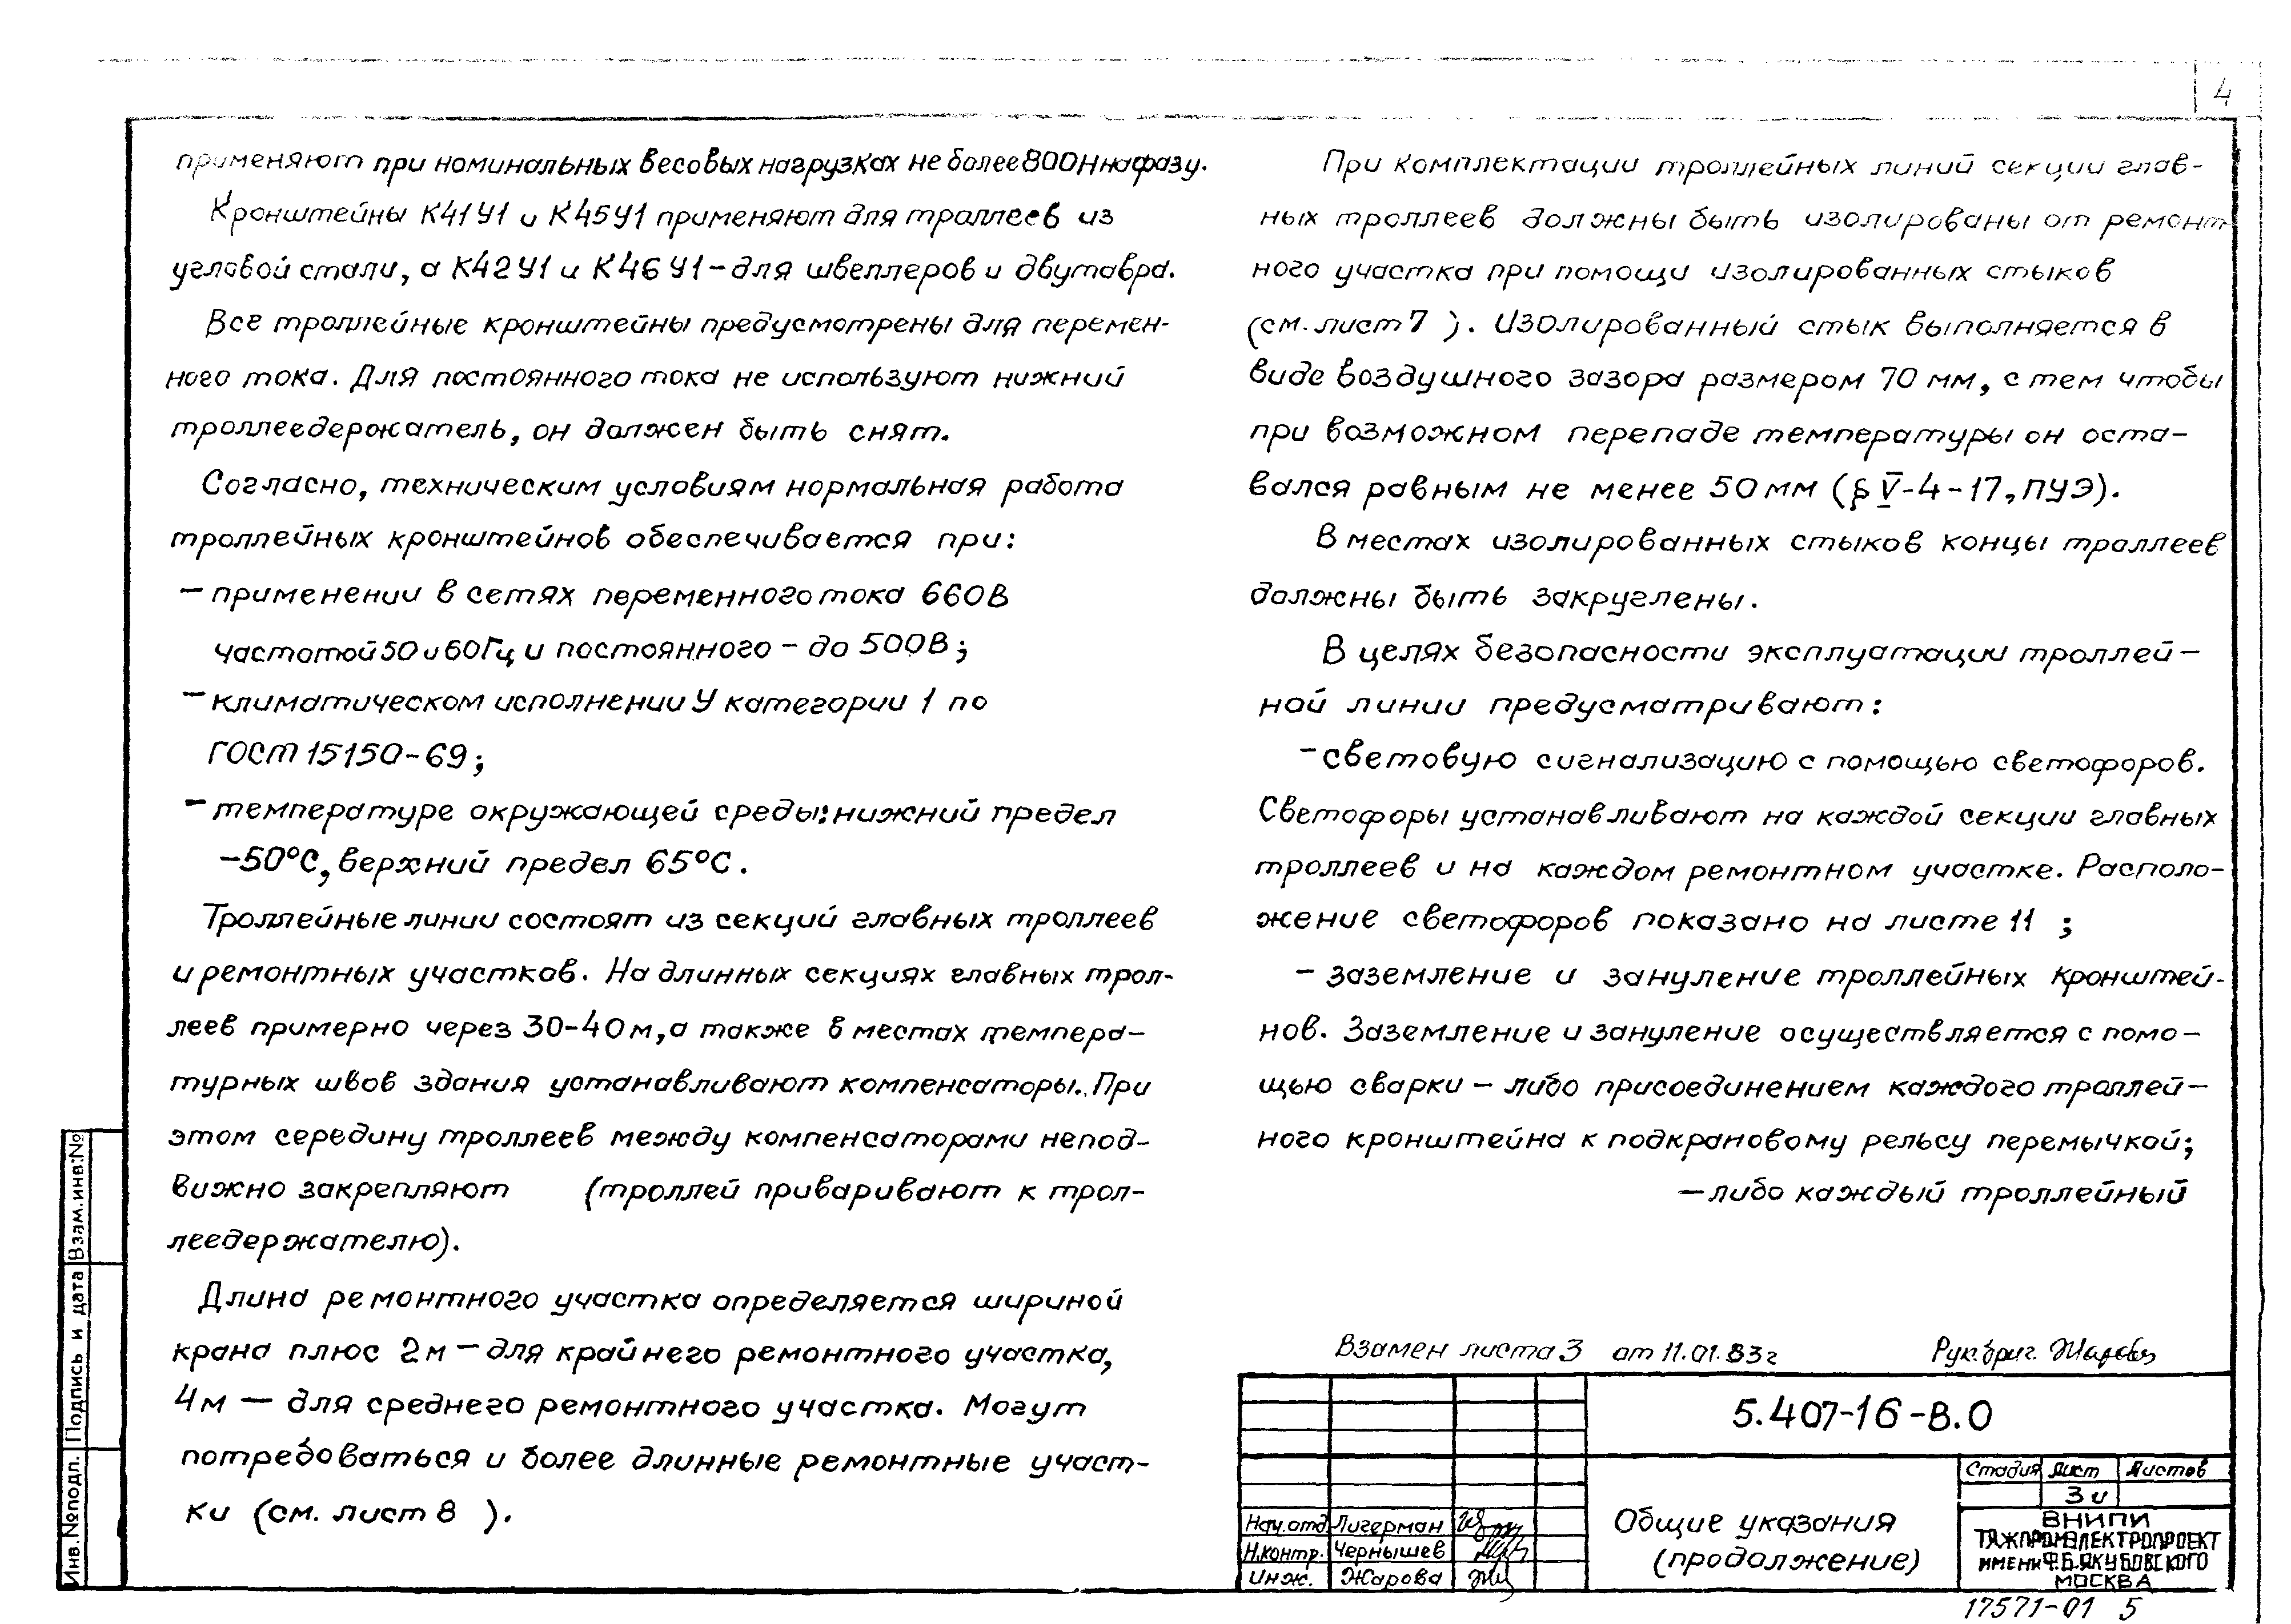 4
применяют при номинальных весовых нагрузках не более 800Н на фазу.
Кронштейны К41У1 и К45У1 применяют для троллеев из
угловой стали, а К42У1 и К46У1 – для швеллеров и двутавра.
Все троллейные кронштейны предусмотрены для перемен-
ного тока. Для постоянного тока не используют нижний
троллеедержатель, он должен быть снят.
Согласно, техническим условиям нормальная работа
троллейных кронштейнов обеспечивается при:
– применении в сетях переменного тока 660В
частотой 50 и 60Гц и постоянного – до 500В;
– климатическом исполнении У категории 1 по
ГОСТ 15150-69;
– температуре окружающей среды: нижний предел
-50°С, верхний предел 65°С.
Троллейные линии состоят из секций главных троллеев
и ремонтных участков. На длинных секциях главных трол-
леев примерно через 30-40м, а также в местах темпера-
турных швов здания устанавливают компенсаторы. При
этом середину троллеев между компенсаторами непод-
вижно закрепляют (троллей приваривают к трол-
леедержателю).
Длина ремонтного участка определяется шириной
крана плюс 2м – для крайнего ремонтного участка,
4м – для среднего ремонтного участка. Могут
потребоваться и более длинные ремонтные участ-
ки (см. лист 8 ).
При комплектации троллейных линий секции глав-
ных троллеев должны быть изолированы от ремонт
ного участка при помощи изолированных стыков
(см. лист 7 ). Изолированный стык выполняется в
виде воздушного зазора размером 70 мм, с тем чтобы
при возможном перепаде температуры он оста-
вался равным не менее 50 мм (§ V-4-17, ПУЭ).
В местах изолированных стыков концы троллеев
должны быть закруглены.
В целях безопасности эксплуатации троллей-
ной линии предусматривают:
– световую сигнализацию с помощью светофоров.
Светофоры устанавливают на каждой секции главных
троллеев и на каждом ремонтном участке. Располо-
жение светофоров показано на листе 11 ;
– заземление и зануление троллейных кронштей-
нов. Заземление и зануление осуществляется с помо-
щью сварки – либо присоединением каждого троллей-
ного кронштейна к подкрановому рельсу перемычкой;
– либо каждый троллейный
Взамен листа 3 от 11.01.83г Рук.бриг. Жарова
5.407-16-В.0
Стадия Лист Листов
3и
Нач.отд Лигерман
Н.контр. Чернышев
Инж. Жарова
Общие указания
(продолжение)
ВНИПИ
ТЯЖПРОМЭЛЕКТРОПРОЕКТ
ИМЕНИ Ф.Б.ЯКУБОВСКОГО
МОСКВА
17571-01 5
Инв.№подл. Подпись и дата Взам.инв.№